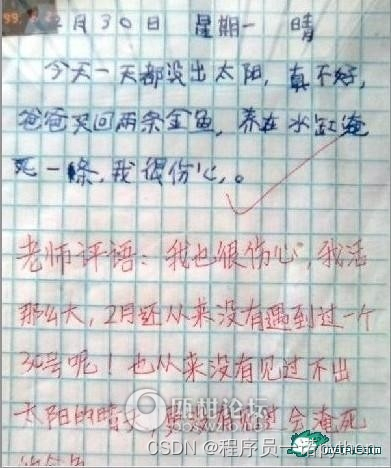 2月30日 星期一 晴
今天一天都没出太阳,真不好,
爸爸买回两条金鱼,养在水缸淹
死一條,我很伤心。
老师评语:我也很伤心,我活
那么大,2月还从来没有遇到过一个
30号呢!也从来没有见过不出
太阳的晴天,更没有见过会淹死
的金鱼
西柑论坛
CSDN @程序员一诺python